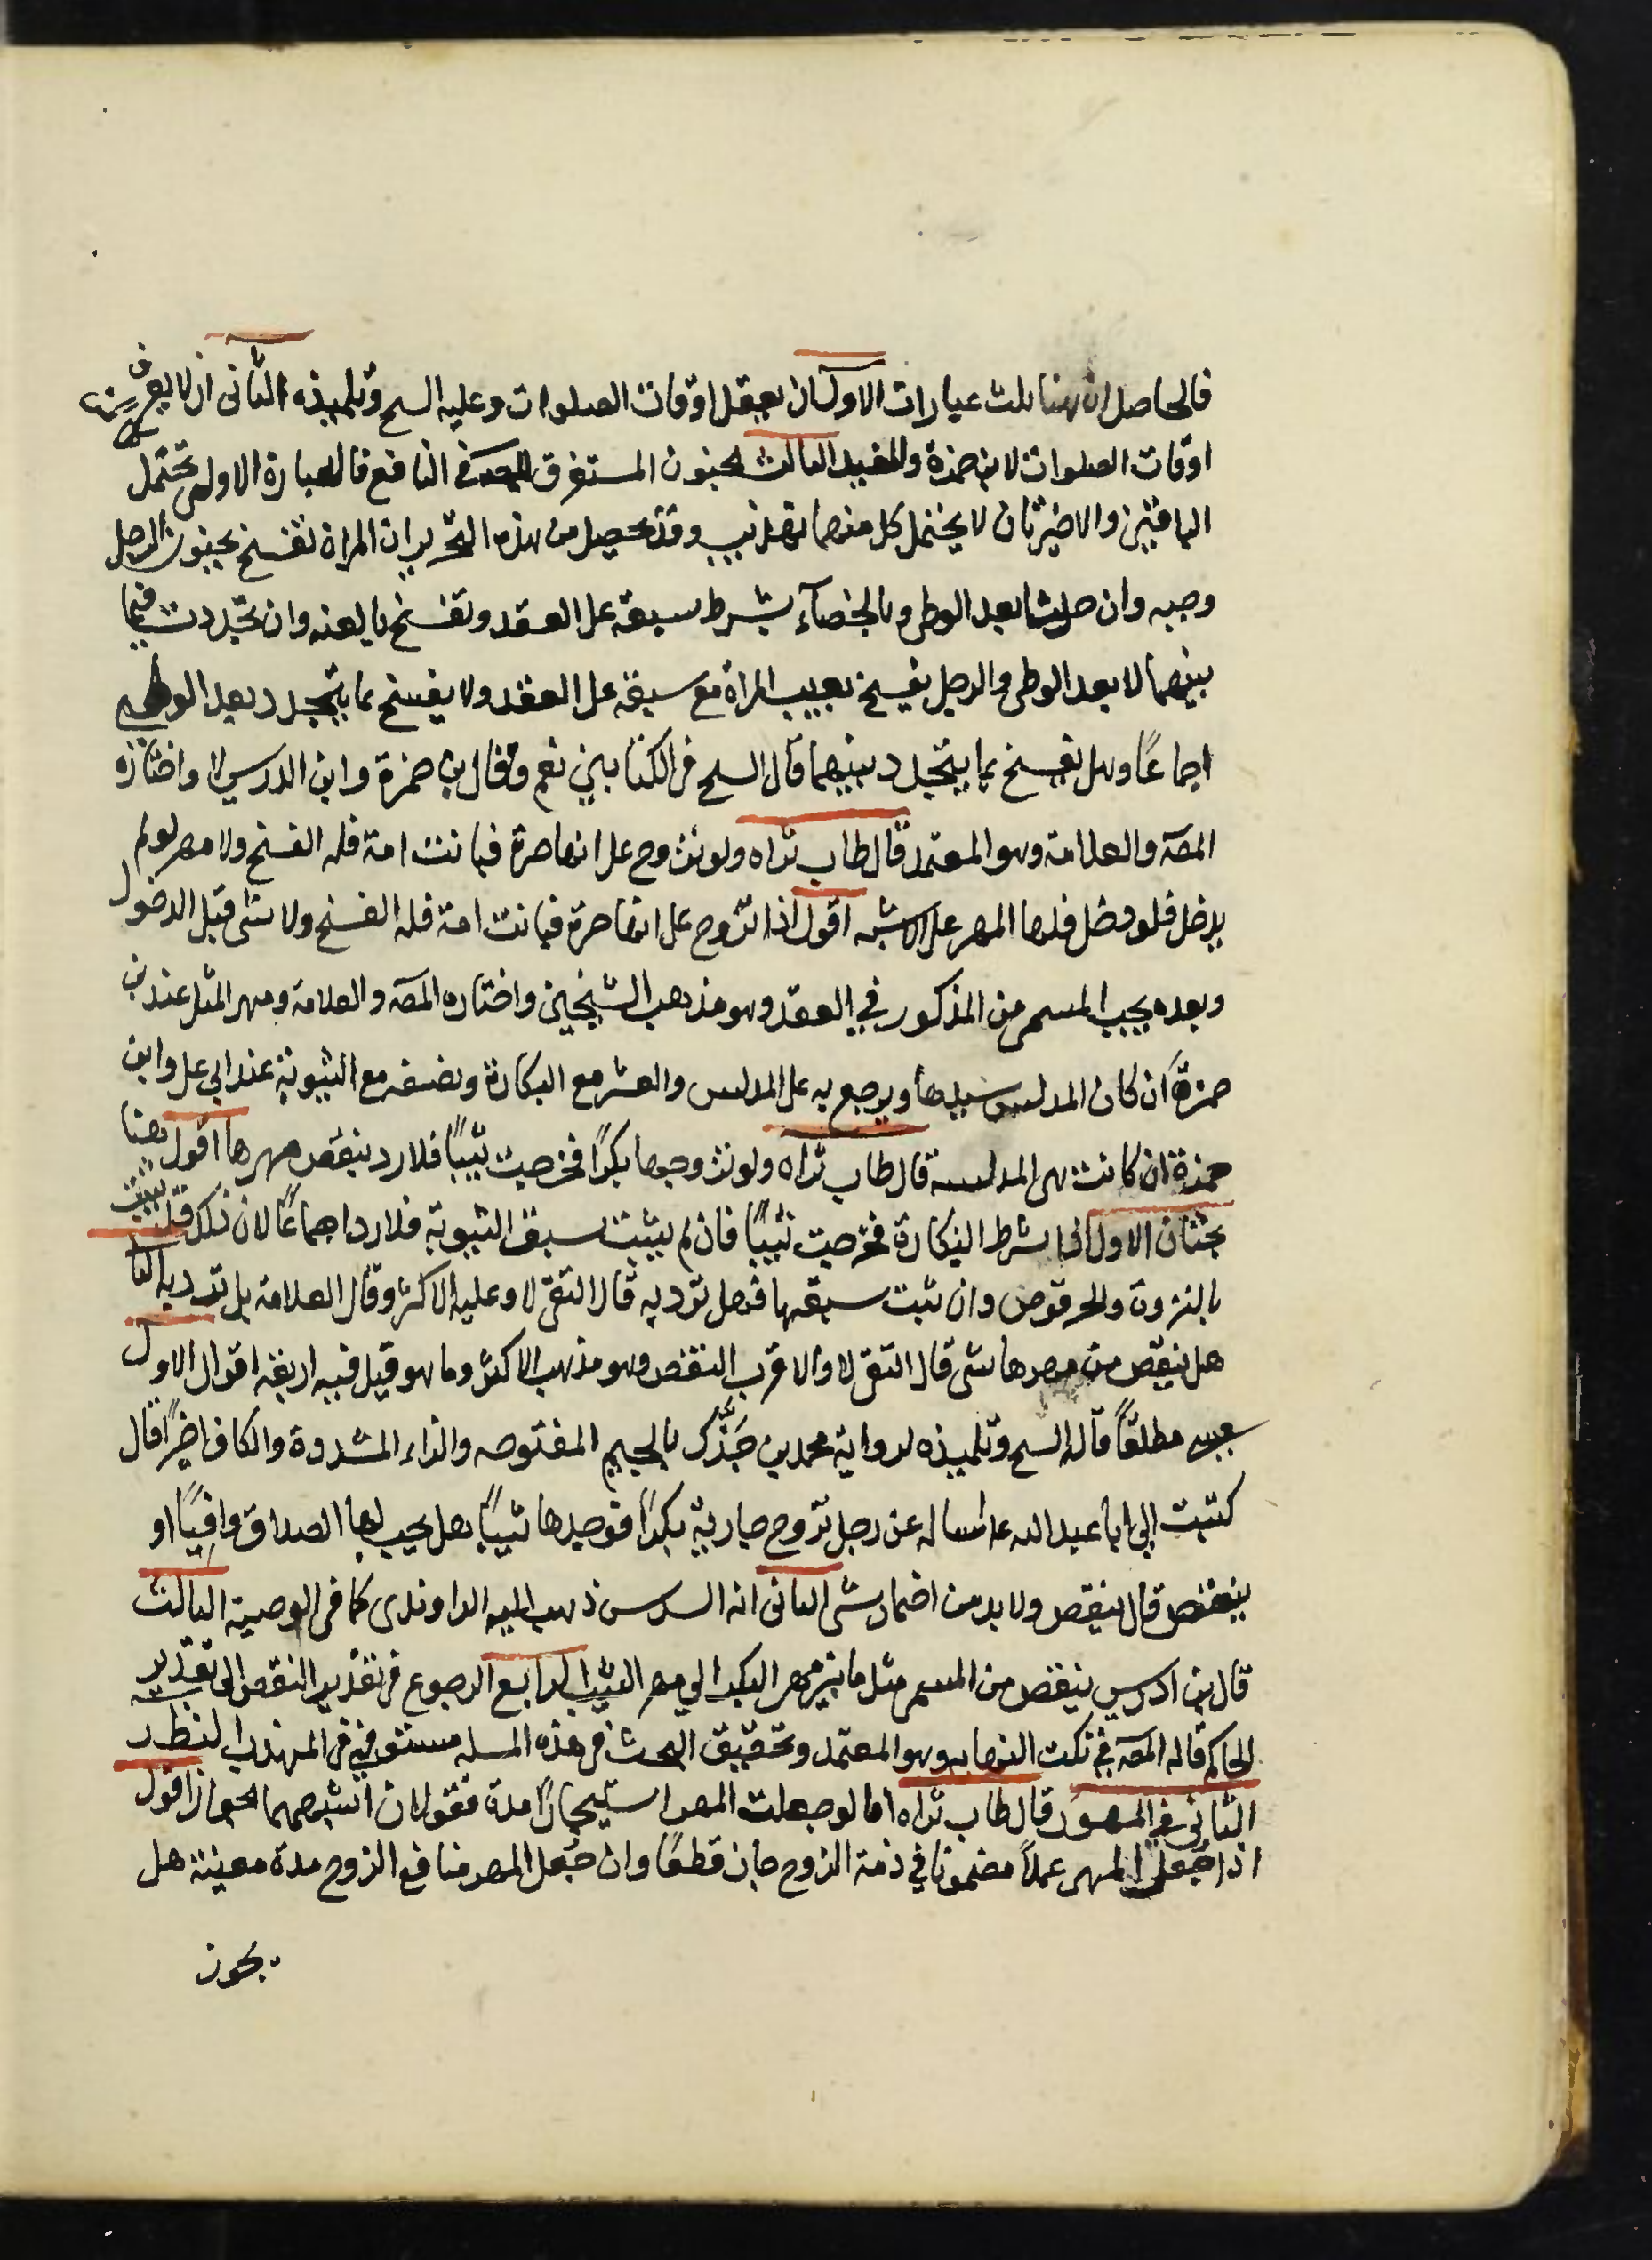 فالحاصل ان هنا ثلث عبارات الاول ان يعقل اوقات الصلوات وعليه الشيخ وتلميذه الثاني ان لا يعرف
اوقات الصلوات لابن حمزة والمفيد الثالث الجنون المستغرق للمصنف في النافع فالعبارة الاولى تحتمل
الباقيتين والاخيرتان لا يحتمل كل منهما تهذيب وقد تحصل من هذه التحرير ان المراة تفسخ بجنون الرجل
وجبه وان حدثا بعد الوطى وبالخصاء بشرط سبقه على العقد وتفسخ بالعنه وان تجددت فيما
بينهما لا بعد الوطى والرجل يفسخ بعيب المراة مع سبقه على العقد ولا يفسخ بما يتجدد بعد الوطى
اجماعًا وهل يفسخ بما يتجدد بينهما قال الشيخ في الكتابين نعم وقال بن حمزة وابن ادريس لا واختاره
المصه والعلامة وهو المعتمد قال طاب ثراه ولو تزوج على انها حرة فبانت امة فله الفسخ ولا مهر لو لم
يدخل فلو دخل فلها المهر على الاشبه اقول اذا تزوج على انها حرة فبانت امة فله الفسخ ولا شى قبل الدخول
وبعده يجب المسمى من المذكور في العقد وهو مذهب الشيخين واختاره المصه والعلامة ومهر المثل عند بن
حمزة ان كان المدلس سيدها ويرجع به على المدلس والعشر مع البكارة ونصفه مع الثيبوبة عند ابي على وابن
حمزة ان كانت هى المدلسة قال طاب ثراه ولو تزوجها بكرًا فخرجت ثيبًا فلا رد ينقص مهرها اقول هنا
بحثان الاول اذا شرط البكارة فخرجت ثيبًا فان لم يثبت سبق الثيبوبة فلا رد اجماعًا لان ذلك قد يثبت
بالنزوة والحرقوص وان ثبت سبقها فهل ترد به قال التقى لا وعليه الاكثر وقال العلامة بل ترد به الثا
هل ينقص من مهرها شى قال التقى لا والاقرب النقص وهو مذهب الاكثر وما هو قيل فيه اربعة اقوال الاول
مطلقًا قاله الشيخ وتلميذه لرواية محمد بن جَزَّك بالجيم المفتوحه والزاء المشددة والكاف اخيرًا قال
كتبت الى ابا عبد الله ع اساله عن رجل تزوج جارية بكرًا فوجدها ثيبًا هل يجب لها الصداق وافيًا او
ينتقص قال ينقص ولا بد من اضمار شى الثانى انه السدس ذهب اليه الراوندى كما فى الوصية الثالث
قال بن ادريس ينقص من المسمى مثل ما بين مهر البكر الى مهر الثيب الرابع الرجوع فى تقدير النقص الى تقدير
الحاكم قاله المصه في نكت النهايه وهو المعتمد وتحقيق البحث فى هذه المسله مستوفى فى المهذب النظر
الثانى في المهور قال طاب ثراه اما لو جعلت المهر استيجارًا مدة فقولان اشبههما الجواز اقول
اذا جُعل المهر عملاً مضمونا في ذمة الزوج جاز قطعًا وان جُعل المهر منافع الزوج مدة معينة هل
يجوز